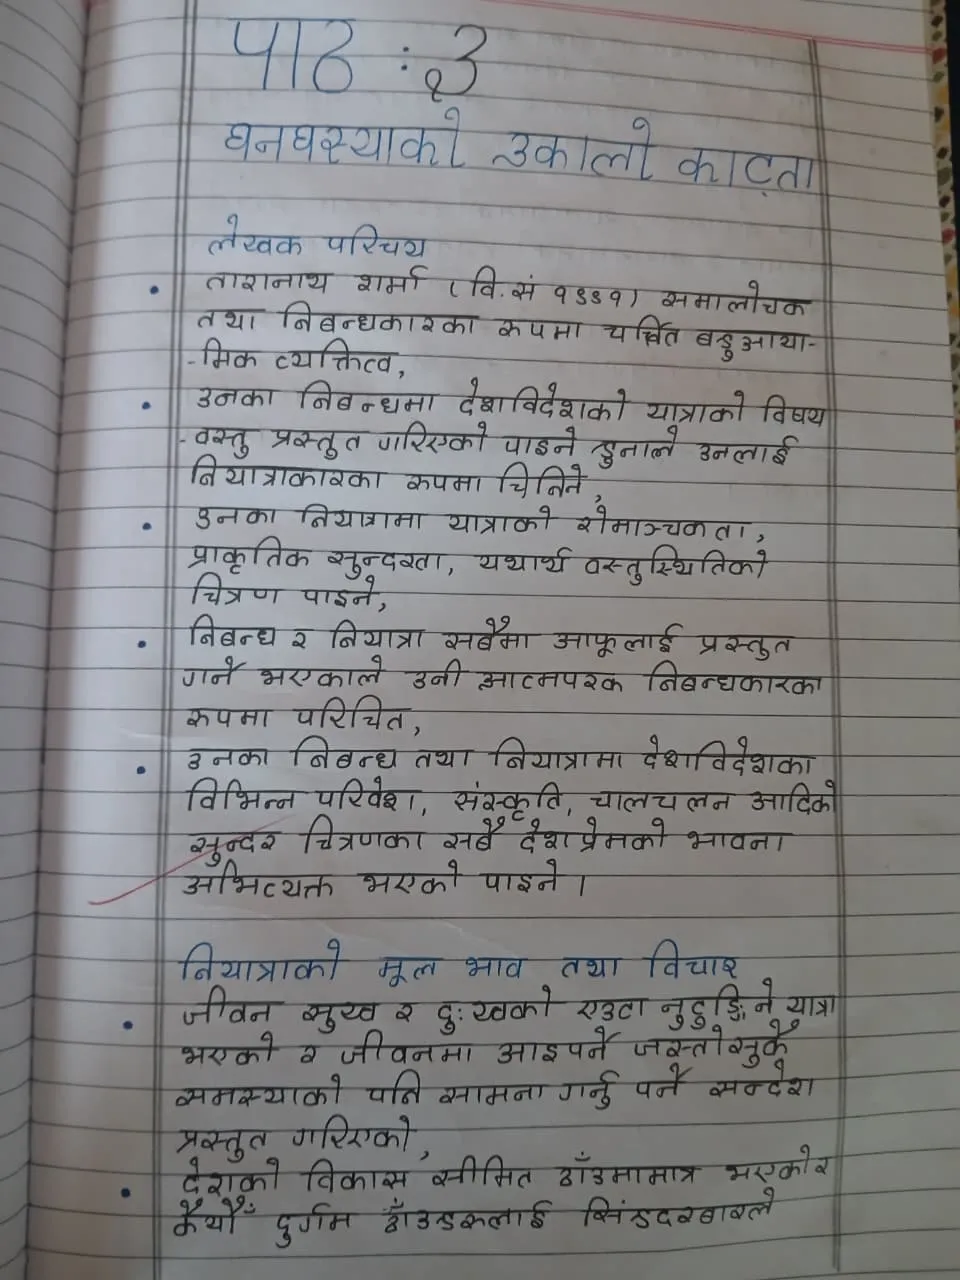 पाठ : ३
घनघस्याको उकालो काट्ता
लेखक परिचय
तारानाथ शर्मा (वि.सं १९९१) समालोचक
तथा निबन्धकारका रूपमा चर्चित बहुआया-
-मिक व्यक्तित्व,
उनका निबन्धमा देशविदेशको यात्राको विषय
-वस्तु प्रस्तुत गरिएको पाइने हुनाले उनलाई
नियात्राकारका रूपमा चिनिने,
उनका नियात्रामा यात्राको रोमाञ्चकता,
प्राकृतिक सुन्दरता, यथार्थ वस्तुस्थितिको
चित्रण पाइने,
निबन्ध र नियात्रा सबैमा आफूलाई प्रस्तुत
गर्ने भएकाले उनी आत्मपरक निबन्धकारका
रूपमा परिचित,
उनका निबन्ध तथा नियात्रामा देशविदेशका
विभिन्न परिवेश, संस्कृति, चालचलन आदिको
सुन्दर चित्रणका सबै देशप्रेमको भावना
अभिव्यक्त भएको पाइने।
नियात्राको मूल भाव तथा विचार
जीवन सुख र दुःखको एउटा नुटुङ्गिने यात्रा
भएको र जीवनमा आइपर्ने जस्तोसुकै
समस्याको पनि सामना गर्नु पर्ने सन्देश
प्रस्तुत गरिएको,
देशको विकास सीमित ठाँउमामात्र भएको र
कैयौँ दुर्गम ठाँउहरूलाई सिंहदरबारले